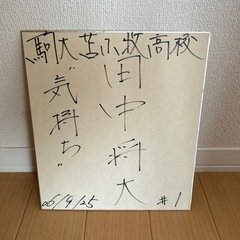 駒大苫小牧高校
田中将大
"気持ち"
06/9/25
#1